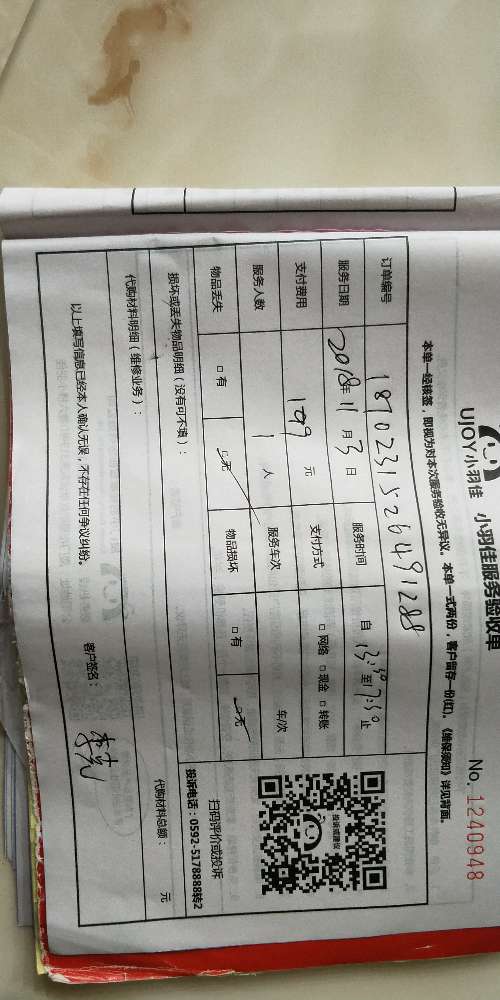 UJOY小羽佳 小羽佳服务验收单
No. 1240948
本单一经核签，即视为对本次服务验收无异议。本单一式两份，客户留存一份(红)。《维保须知》详见背面。
订单编号
服务日期 2018年11月3日 服务时间 自 13:30 至 17:30 止
支付费用 179 元 支付方式 □ 网络 □ 现金 □ 转账
服务人数 1 人 服务车次 车/次
物品丢失 □ 有 □ 无 物品损坏 □ 有 □ 无
损坏或丢失物品明细（没有可不填）：
代购材料明细（维修业务）：
代购材料总额： 元
扫码评价或投诉
投诉电话：0592-5178888转2
以上填写信息已经本人确认无误，不存在任何争议纠纷。
客户签名：